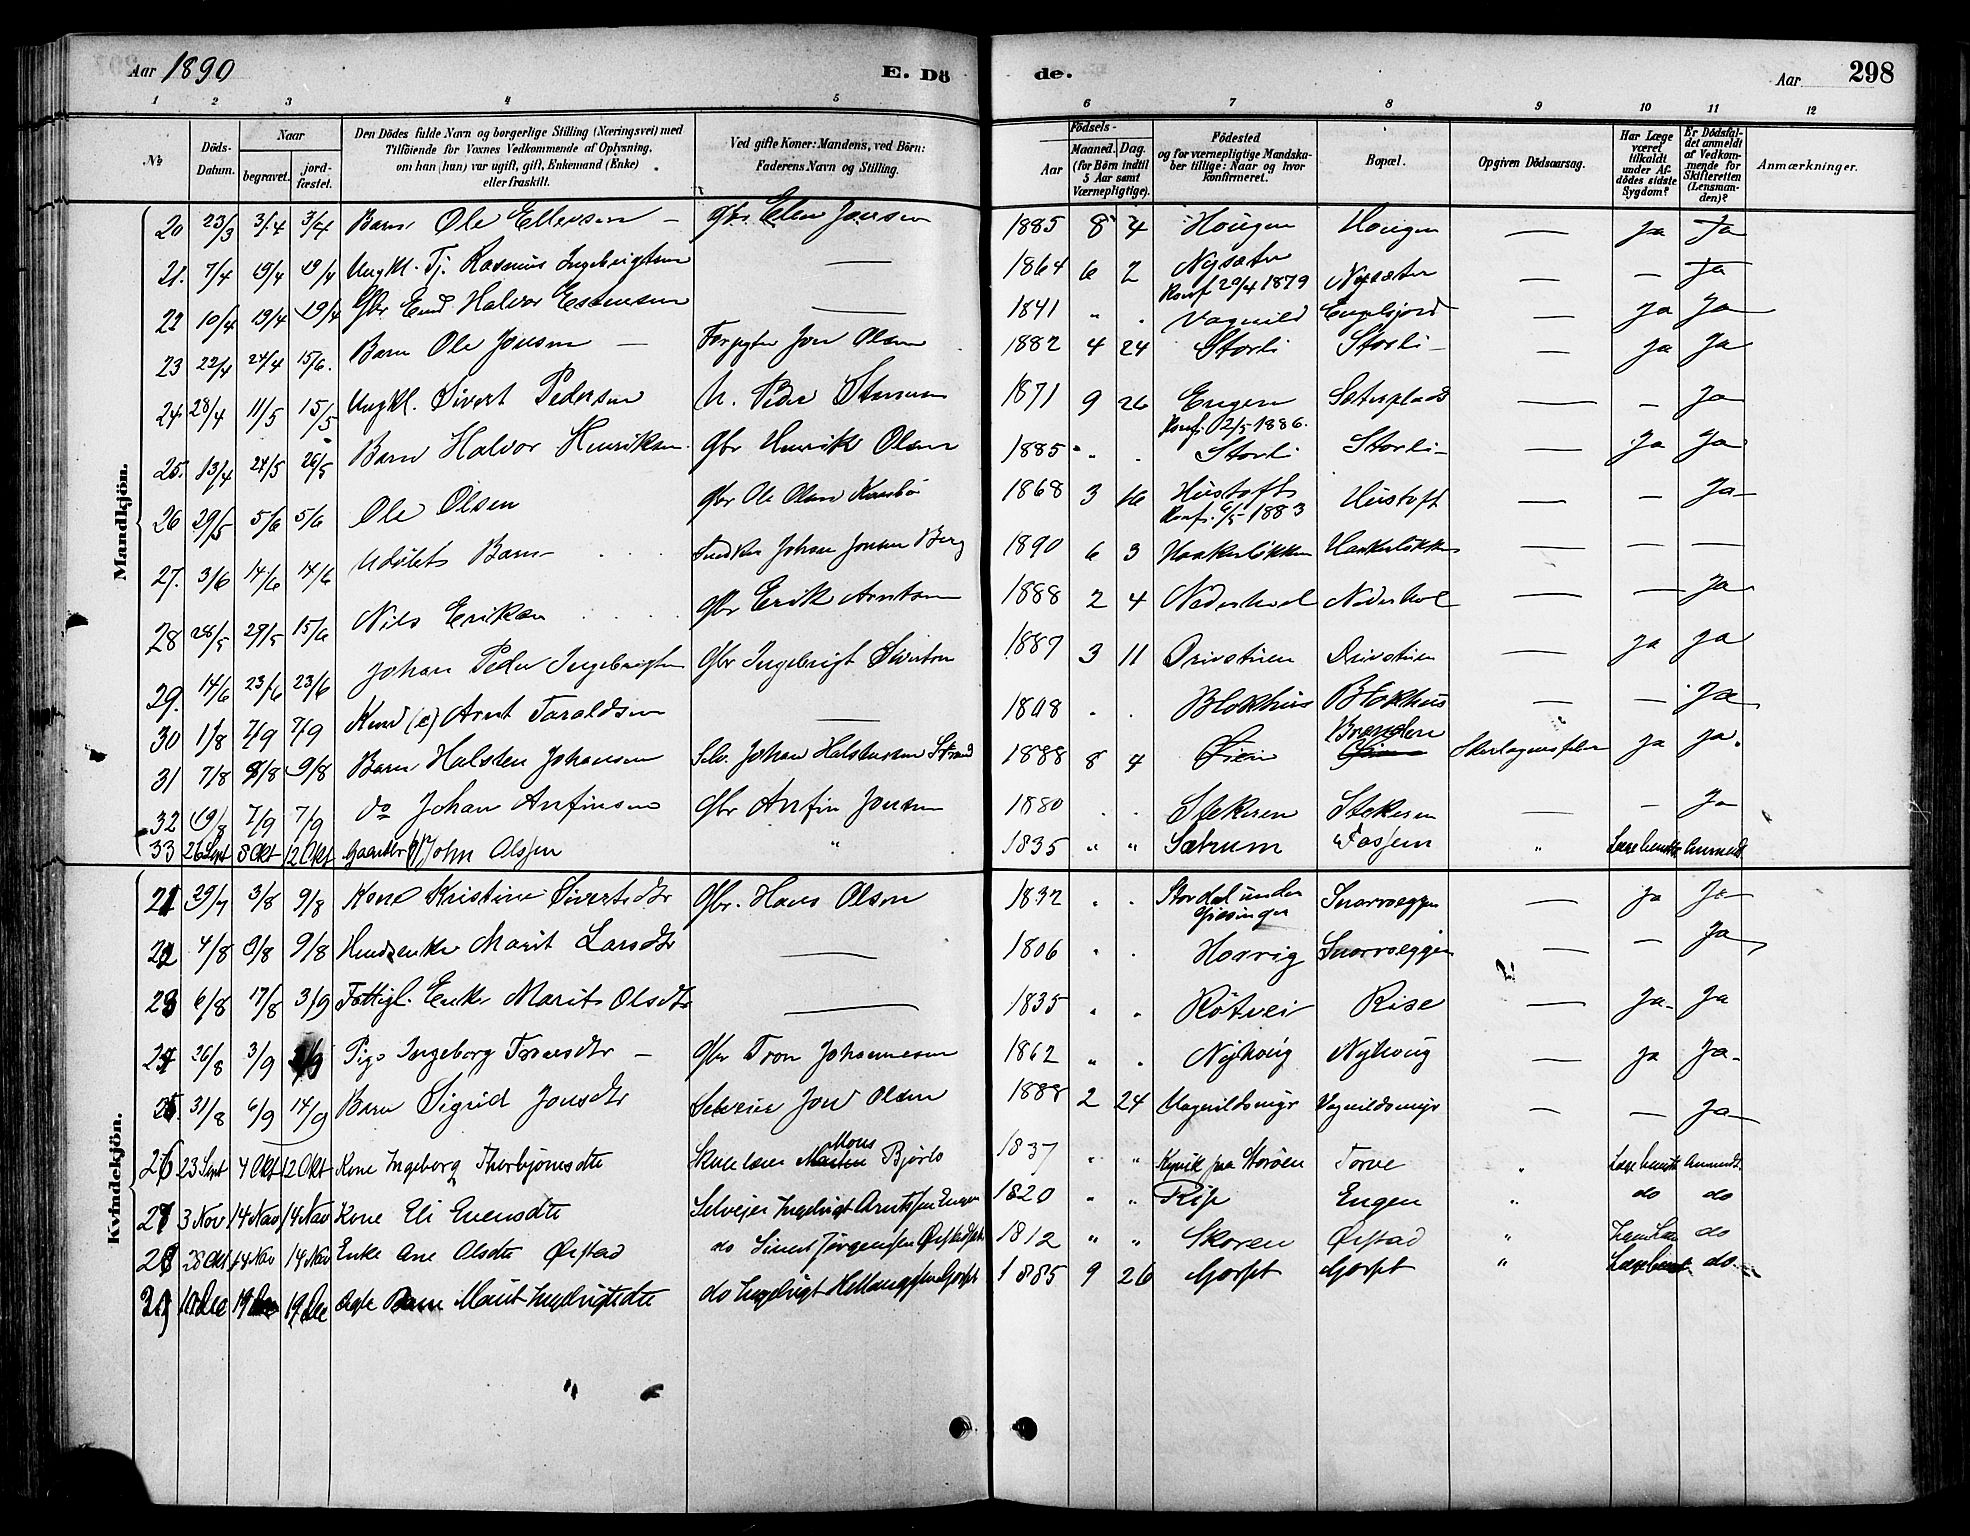 Aar 1890
E. Dö
de.
Aar
298
1 2 3 4 5 6 7 8 9 10 11 12
No
Döds-Datum.
Naar
begravet.
jord-fæstet.
Den Dödes fulde Navn og borgerlige Stilling (Næringsvei) med
Tilföiende for Voxnes Vedkommende af Oplysning,
om han (hun) var ugift, gift, Enkemand (Enke)
eller fraskilt.
Ved gifte Koner: Mandens, ved Börn:
Faderens Navn og Stilling.
Födsels-
Aar
Maaned. Dag.
(for Börn indtil
5 Aar samt
Værnepligtige).
Födested
og for værnepligtige Mandska-
ber tillige: Naar og hvor
konfirmeret.
Bopæl.
Opgiven Dödsaarsag.
Har Læge
været
tilkaldt
under Af-
dödes sidste
Sygdom?
Er Dödsfal-
det anmeldt
af Vedkom-
mende for
Skifteretten
(Lensman-
den)?
Anmærkninger.
Mandkjön.
20 23/3 3/4 3/4 Barn Ole Ellensen — Gbr Elen Jonsen 1885 8 4 Hougen Hougen — Ja Ja
21. 7/4 19/4 19/4 Ungkl. Tj. Rasmus Ingebrigtsen — 1864 6 2 Nysæter Konf. 20/4 1879 Nysæter — — Ja
22 10/4 19/4 19/4 Gbr Halvor Estensen — 1841 " . Vognild Engelsjord — Ja Ja
23 22/4 27/4 15/6. Barn Ole Jonsen — Forpagter Jon Olsen 1882 4 24 Storli Storli — — Ja Ja
24. 28/4 11/5 15/5 Ungkl. Sivert Pedersen Peder 1871 9 26 Engen Konf. 2/5 1886. Sæterplads — — Ja
25. 13/4 24/5 26/5 Barn Halvor Henriksen Gbr Henrik Olsen 1885 " . Storli Storli — Ja Ja
26 29/5 5/6 5/6 Ole Olsen Gbr Ole Olsen 1868 3 16 Hustoft Konf. 6/5 1883 Hustoft — — Ja —
27. 3/6 14/6 14/6 Udøbt Barn Snedker Johan Jonsen Berg 1890 6 3 Haakerløkken Haakerløkken — — —
28 28/5 29/5 15/6 Nils Eriksen Gbr Erik Arntsen 1888 2 4 Nederhol Nederhol — — Ja
29. 14/6 23/6 23/6 Johan Peder Ingebrigtsen Gbr Ingebrigt Sivertsen 1887 3 11 Drivstuen Drivstuen — Ja Ja
30 1/8 7/9 7/9 (e) Arnt Taraldsen — 1808 . . Blokhus Blokhus — — Ja
31 7/8 9/8 9/8 Barn Halsten Johansen Selv. Johan Halstensen Strand 1888 8 4 Øien Brenden Skarlagensfeber Ja Ja.
32 19/8 7/9 7/9 do Johan Anfinsen Gbr Anfin Jonsen 1880 . . Stekeren Stekeren — — Ja
33 26 Sept 8 Okt 12 Okt John Olssen " 1835 " " Sætrum Fossem " Læge benytt. Anmeldt.
Kvindekjön.
21 29/7 3/8 9/8 Kone Kristine Sivertsdtr Gbr. Hans Olsen 1832 . . Stordal under Snoroeggen — Ja Ja
22 4/8 9/8 9/8 Marit Larsdtr — 1806 . . Horvig Snoroeggen — — Ja
23 6/8 17/8 3/9 Fattigl. Enke Marit Olsdtr — 1835 . . Røtvei Rise — Ja — Ja
24 26/8 3/9 Pige Ingeborg Tronsdtr — Gbr Tron Johannesen 1862 " . Nyhoug Nyhoug — Ja Ja —
25. 31/8 6/9 14/9 Barn Sigrid Jonsdtr Selveier Jon Olsen 1888 2 24 Vognildsmyr Vognildsmyr — — Ja
26 23 Sept 4 Okt 12 Okt Kone Ingeborg Thorbjørnsdtr Skolelærer Mons Bjørlo 1837 " " Kysvik paa Storøen Torve " Læge benytt. Anmeldt.
27 3 Nov 14 Nov 14 Nov Kone Eli Evensdtr Selveier Ingebrigt Arntssen Engen 1820 " " Rise Engen " do do
28 28 Okt 14 Nov 14 Nov Enke Ane Olsdtr Ørstad do Sivert Jørgenssen Ørstad 1812 " " Skoren Ørstad " do
29 10 Dec 19 Dec 19 Dec Ægte Barn Marit Ingebrigtsdtr do Ingebrigt Gorset 1885 9 26 Gorset Gorset " Læge benytt do